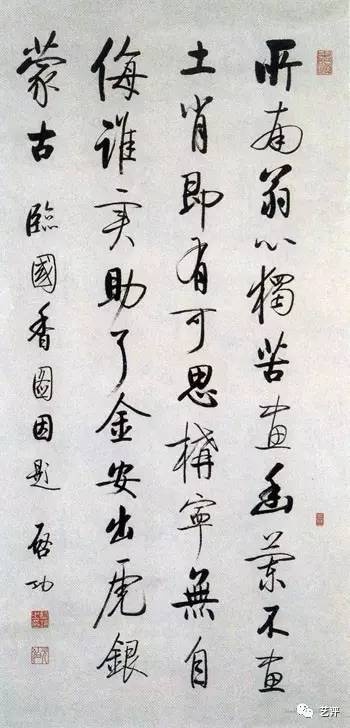 所南翁心獨苦畫幽蘭不畫
土肖即有可思構寧無自
侮誰実助了金安出虎銀
蒙古 臨國香圖因題 启功
艺评